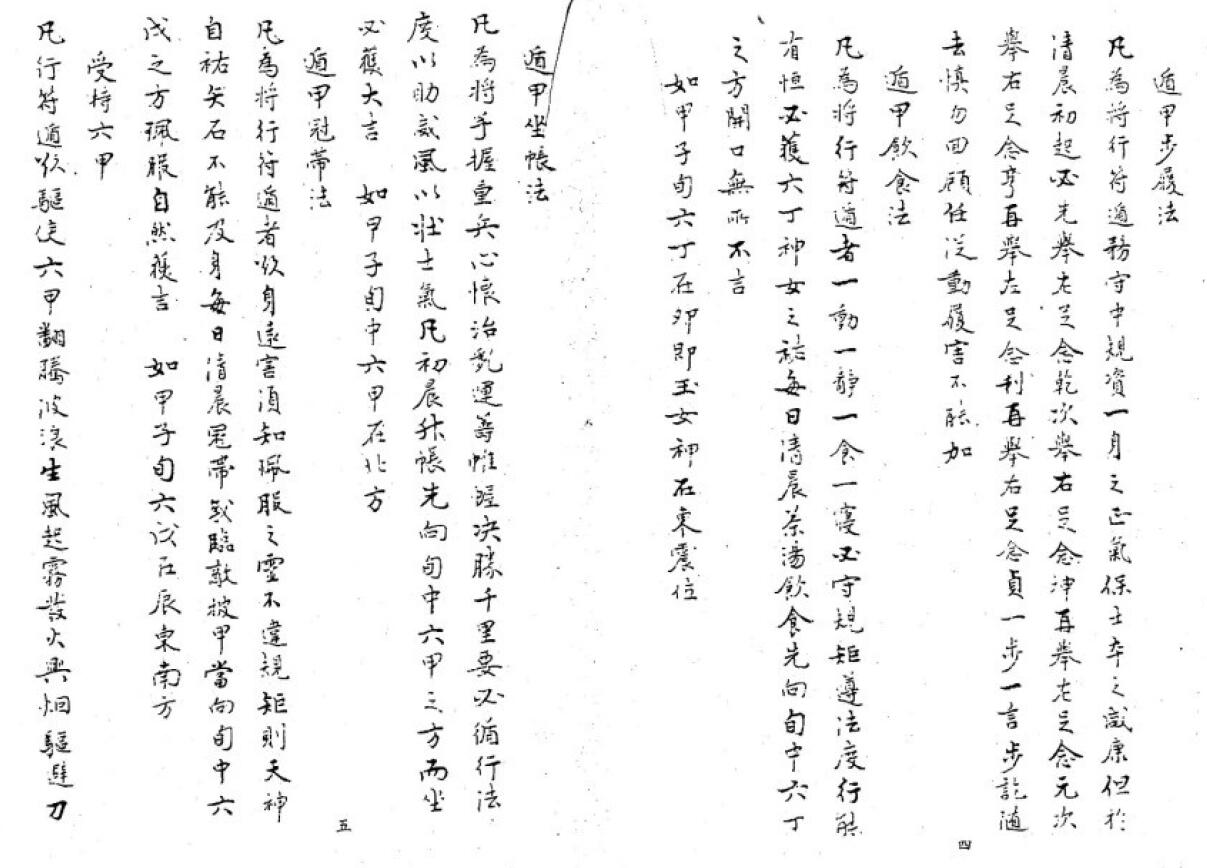 遁甲步履法
凡為將行符遁務守中規資一身之正氣保士卒之咸康但於
清晨初起必先舉左足念乾次舉右足念坤再舉左足念元次
舉右足念亨再舉左足念利再舉右足念貞一步一言步訖隨
去慎勿回顧任從動履害不能加
遁甲飲食法
凡為將行符遁者一動一靜一食一寢必守規矩遵法度行能
有恒必獲六丁神女之祐每日清晨茶湯飲食先向旬中六丁
之方開口無所不言
如甲子旬六丁在卯即玉女神在東震位
四
遁甲坐帳法
凡為將手握重兵心懷治亂運籌帷幄決勝千里要必循行法
度以助威風以壯士氣凡初晨升帳先向旬中六甲之方而坐
必獲大吉 如甲子旬中六甲在北方
遁甲冠帶法
凡為將行符遁者欲身遠害須知珮服之靈不違規矩則天神
自祐矢石不能及身每日清晨冠帶或臨敵披甲當向旬中六
戊之方珮服自然獲吉 如甲子旬六戊在辰東南方
受持六甲
凡行符遁欲驅使六甲翻騰波浪生風起霧發火興烟驅避刀
五